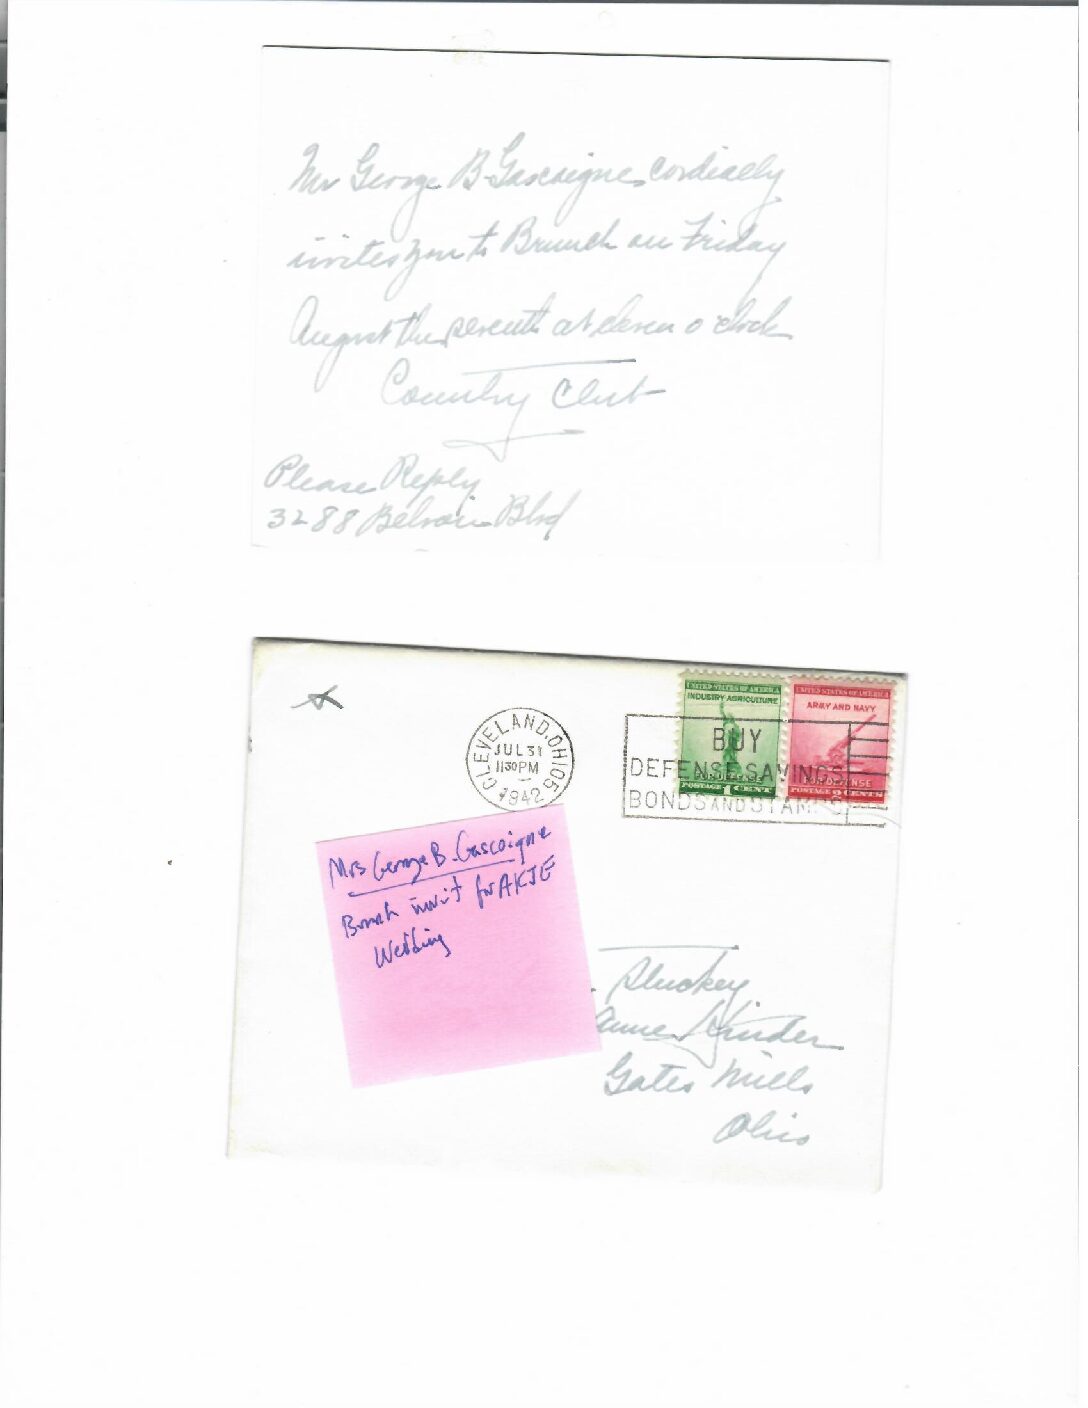 Mr George B Gascoigne cordially
invites you to Brunch on Friday
August the seventh at eleven o'clock
Country Club
Please Reply
3288 Belvoir Blvd
CLEVELAND, OHIO 5
JUL 31
1130 PM
1942
UNITED STATES OF AMERICA
INDUSTRY AGRICULTURE
FOR DEFENSE
POSTAGE 1 CENT
UNITED STATES OF AMERICA
ARMY AND NAVY
FOR DEFENSE
POSTAGE 2 CENTS
BUY
DEFENSE SAVINGS
BONDS AND STAMPS
Mrs George B. Gascoigne
Brunch invit for AKJE
Wedding
Gates Mills
Ohio